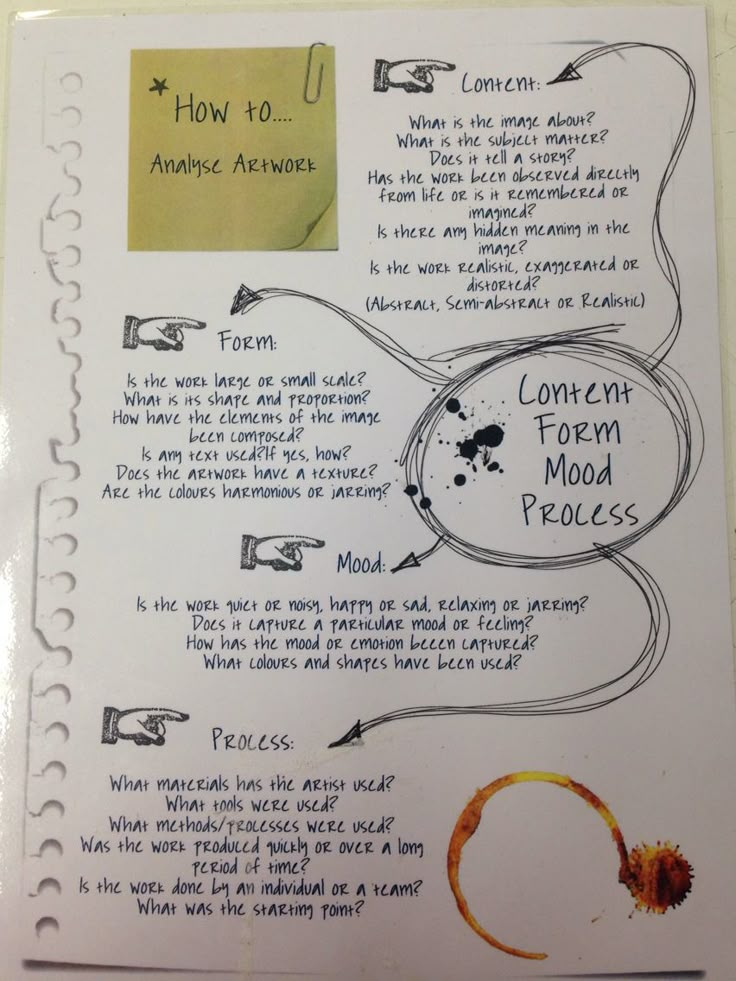 How to....
Analyse Artwork
Content:
What is the image about?
What is the subject matter?
Does it tell a story?
Has the work been observed directly
from life or is it remembered or
imagined?
Is there any hidden meaning in the
image?
Is the work realistic, exaggerated or
distorted?
(Abstract, Semi-abstract or Realistic)
Form:
Is the work large or small scale?
What is its shape and proportion?
How have the elements of the image
been composed?
Is any text used?If yes, how?
Does the artwork have a texture?
Are the colours harmonious or jarring?
Content
Form
Mood
Process
Mood:
Is the work quiet or noisy, happy or sad, relaxing or jarring?
Does it capture a particular mood or feeling?
How has the mood or emotion beeen captured?
What colours and shapes have been used?
Process:
What materials has the artist used?
What tools were used?
What methods/processes were used?
Was the work produced quickly or over a long
period of time?
Is the work done by an individual or a team?
What was the starting point?